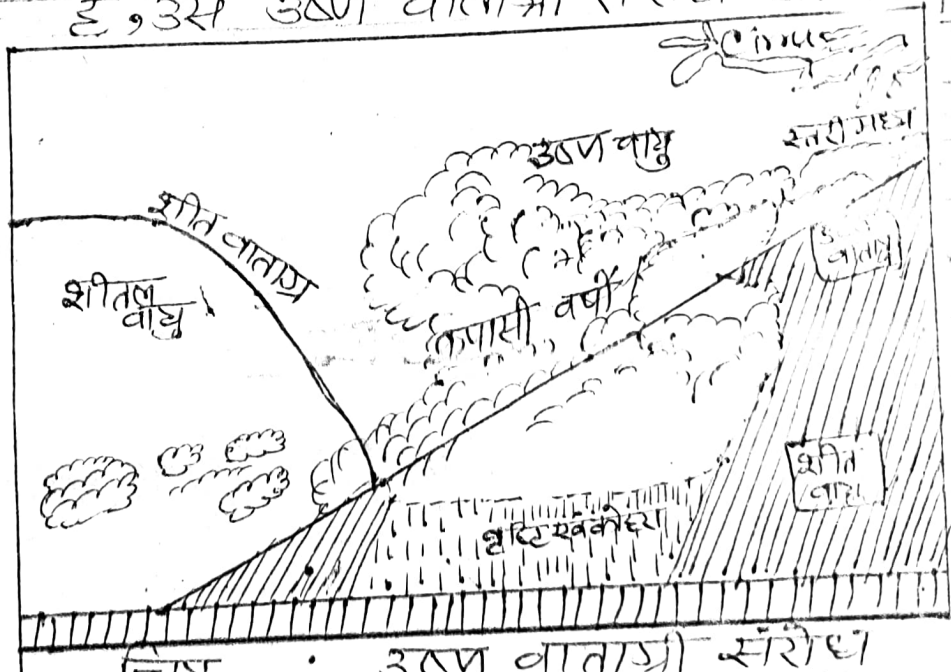 है, उसे उष्ण वाताग्री
Cirrus
उष्ण वायु
स्तरी मध्य
शीत वाताग्र
शीतल
वायु
उष्ण
वाताग्र
कपासी वर्षी
शीत
वायु
वृष्टि एवं कोहरा
चित्र : उष्ण वाताग्री संरोध